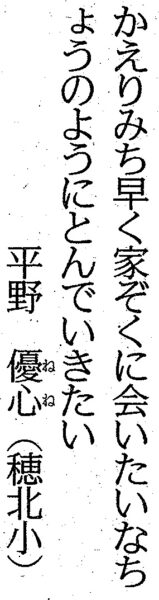 かえりみち早く家ぞくに会いたいなち
ょうのようにとんでいきたい
平野　優心（穂北小）
ねね